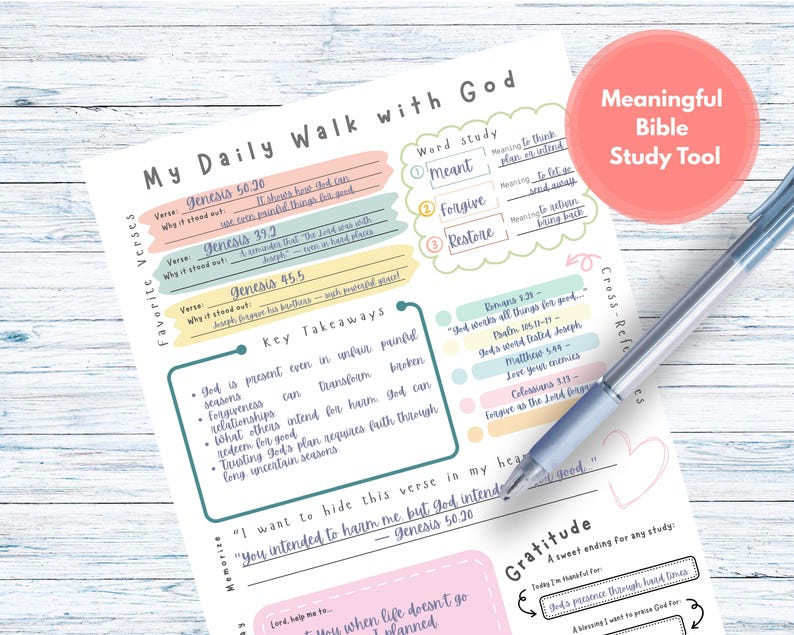 Meaningful
Bible
Study Tool
My Daily Walk with God
Favorite Verses
Verse: Genesis 50:20
Why it stood out: It shows how God can
use even painful things for good
Verse: Genesis 39:2
Why it stood out: A reminder that "The Lord was with
Joseph" — even in hard places
Verse: Genesis 45:5
Why it stood out:
Joseph forgave his brothers — such powerful grace!
Word Study
1 Meant Meaning to think
plan, or intend
2 Forgive Meaning to let go
send away
3 Restore Meaning to return
bring back
Key Takeaways
• God is present even in unfair, painful
seasons.
• Forgiveness can transform broken
relationships.
• What others intend for harm, God can
redeem for good.
• Trusting God's plan requires faith through
long, uncertain seasons.
Cross-Refe
es
Romans 8:28 –
"God works all things for good..."
Psalm 105:17-19 –
God's word tested Joseph
Matthew 5:44 –
Love your enemies
Colossians 3:13 –
Forgive as the Lord forgave
Memorize
"I want to hide this verse in my hear
"You intended to harm me, but God intende good..."
— Genesis 50:20
Gratitude
A sweet ending for any study:
Today I'm thankful for:
God's presence through hard times.
A blessing I want to praise God for:
Lord, help me to...
t You when life doesn't go
I planned.